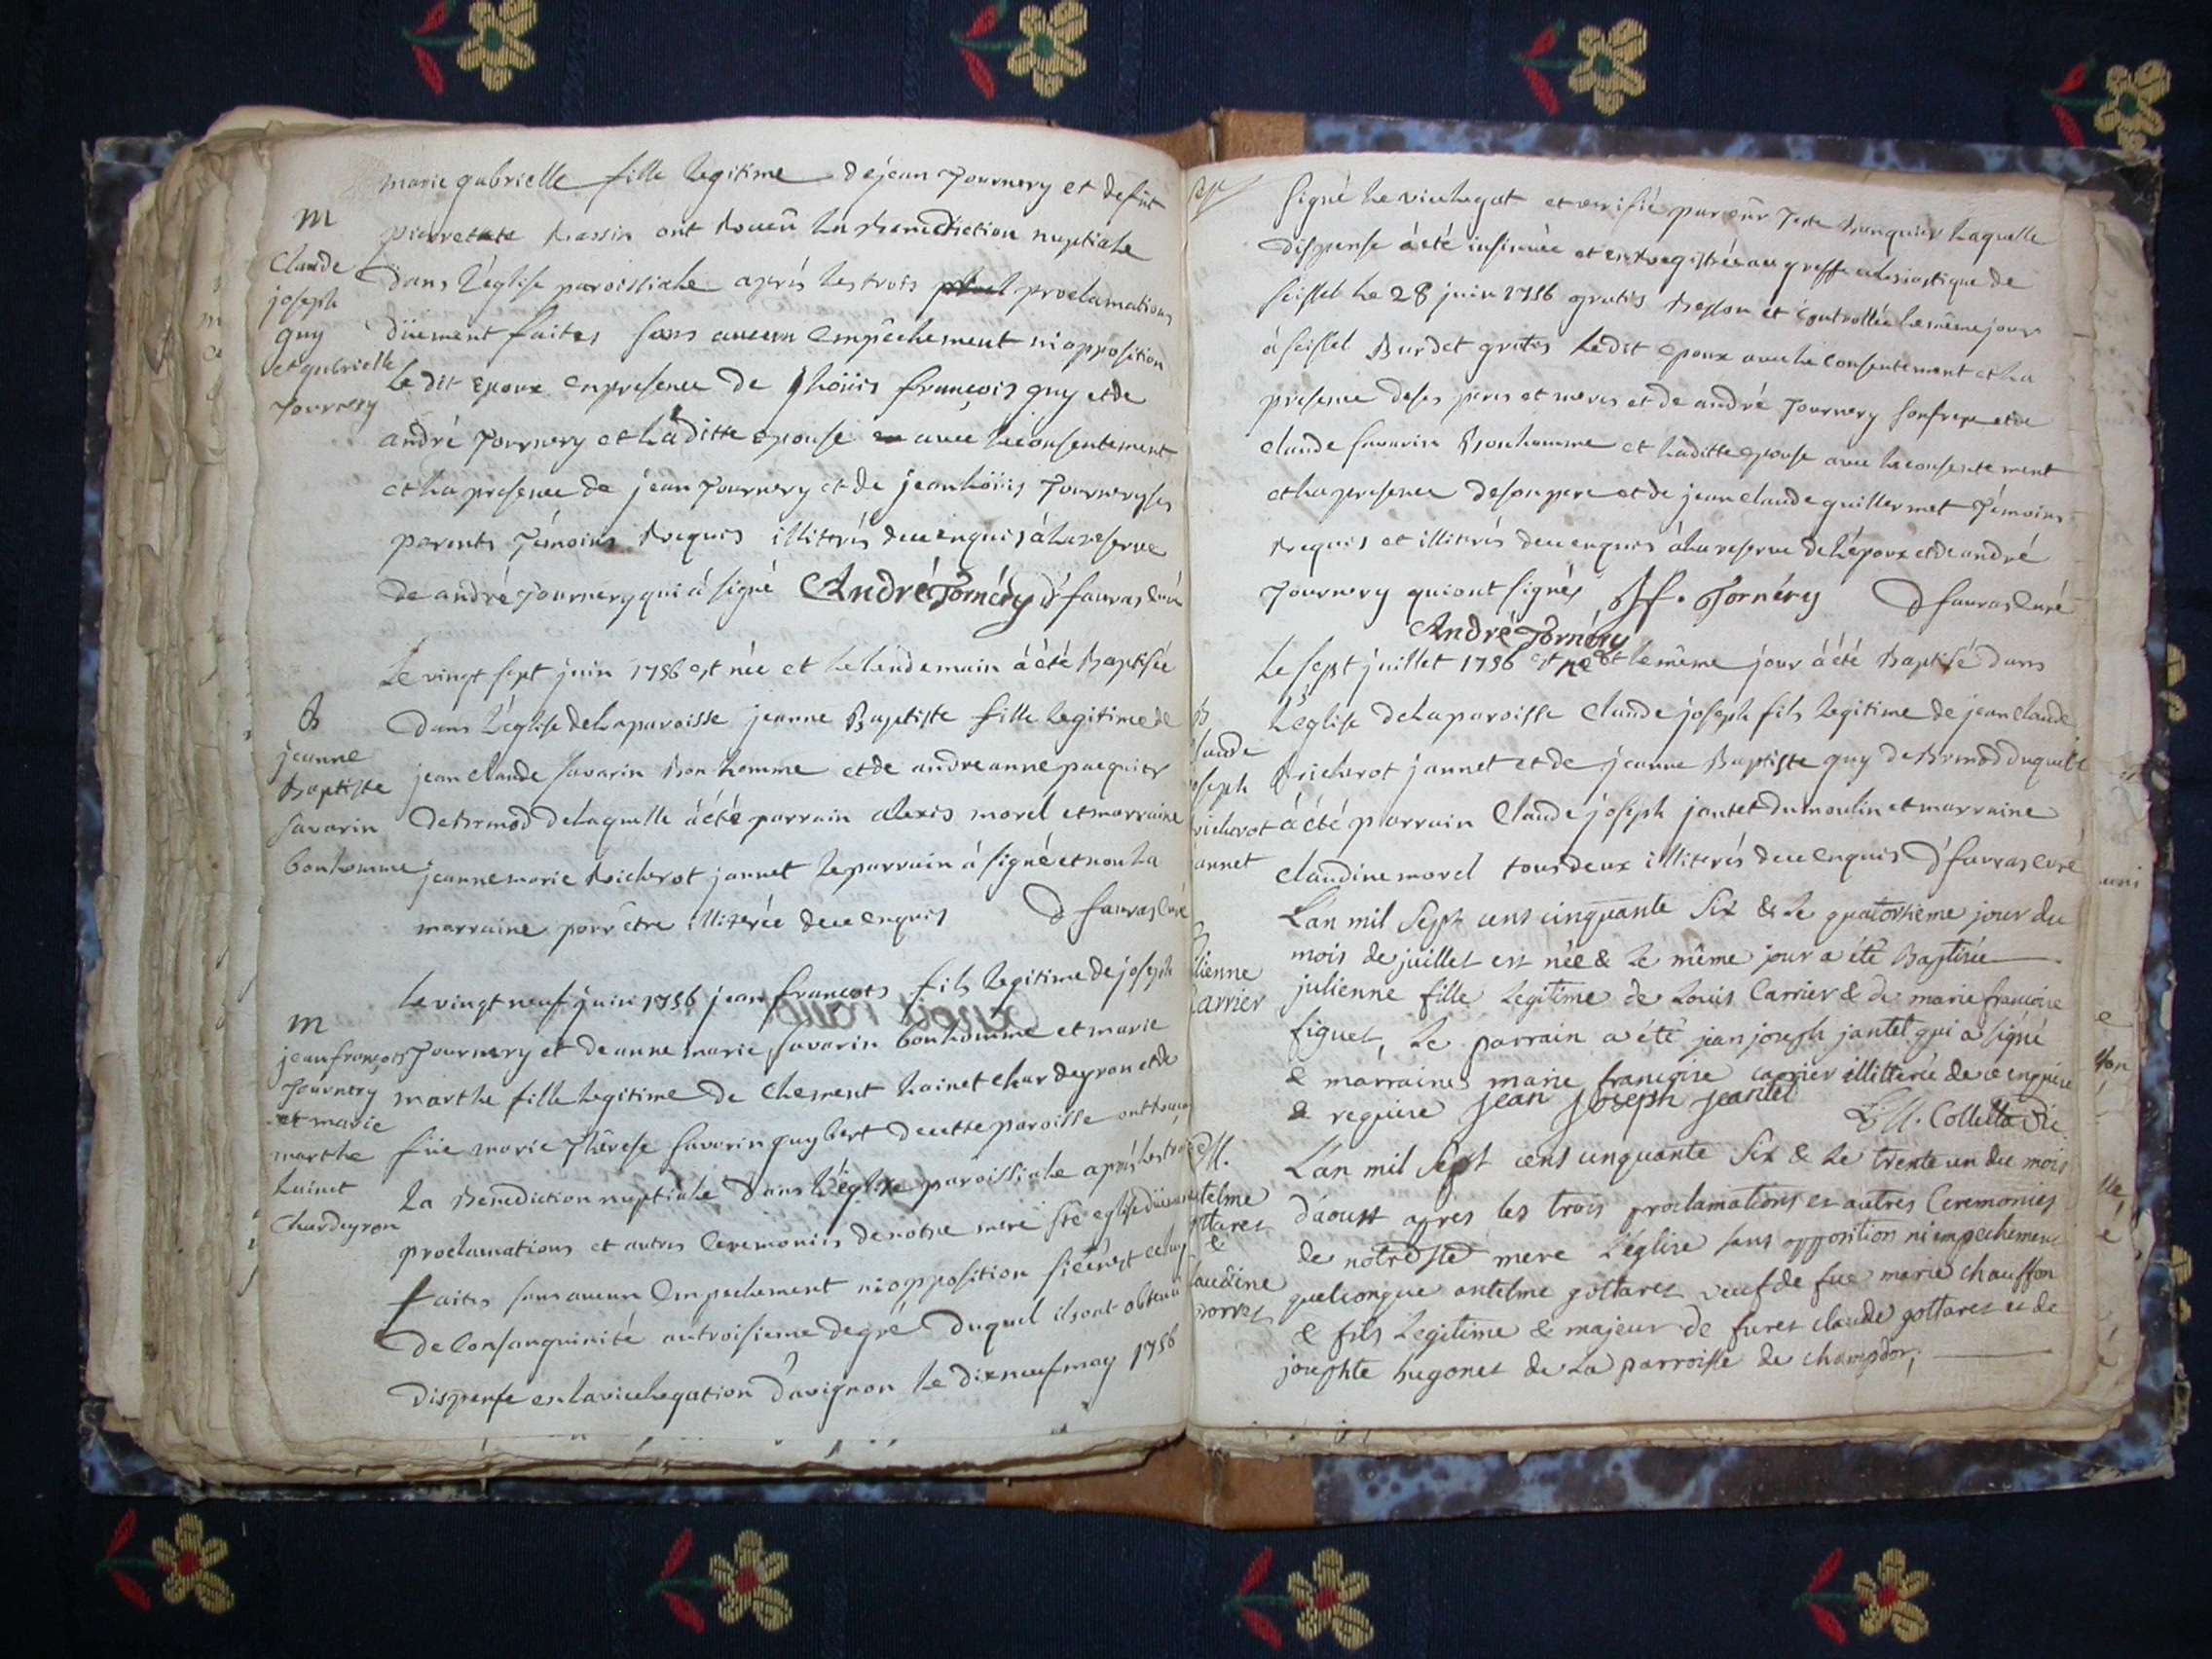 marie gabrielle fille legitime de jean Tournery et defût
m
pierrette Massin ont Receû la Benediction nuptiale
Claude
joseph
guy
et gabrielle
Tournery
dans l'église paroissiale aprés les trois proclamations
düement faites sans aucun empêchement ni opposition
Le dit epoux en presence de loüis françois guy et de
andré Tournery et la ditte epouse avec le consentement
et la presence de jean Tournery et de jean loüis Tournery ses
parents Témoins Requis illiterés de ce enquis à la reserve
de andré Tournery qui à signé André Tornéry D favras Curé
Le vingt sept juin 1756 est née et le lendemain à été Baptisée
B
jeanne
Baptiste
savarin
bonhomme
dans l'église de la paroisse jeanne Baptiste fille legitime de
jean claude savarin Bonhomme et de andreanne pacquier
de Brmod de laquelle à été parrain alexis morel et marraine
jeanne marie Richerot jannet le parrain à signé et non la
marraine pour être illiterée de ce enquis D favras Curé
Le vingt neuf juin 1756 jean françois fils legitime de joseph
m
jean françois
Tournery
et marie
marthe
Lainet
Chardeyron
Tournery et de anne marie savarin bonhomme et marie
marthe fille legitime de Clement Lainet Chardeyron et de
füe marie Thérese savarin guybert de cette paroisse ont receu
la Benediction nuptiale dans l'église paroissiale aprés les trois
proclamations et autres Ceremonies de notre mere ste eglise düement
faites sans aucun Empechement ni opposition si ce n'est celuy
de Consanguinité au troisieme degré duquel ils ont obtenu
dispense en la vicelegation d'avignon le dix neuf may 1756
signé le vicelegat et verifié par Banquier laquelle
dispense à été insinuée et enregistrée au greffe eclesiastique de
seissel le 28 juin 1756 gratis et controllée le même jour
à seissel Burdet gratis le dit epoux avec le consentement et la
presence de ses peres et meres et de andré Tournery son frere et de
claude savarin Bonhomme et la ditte epouse avec le consentement
et la presence de son pere et de jean claude guillermet Témoins
Requis et illiterés de ce enquis à la reserve de l'époux et de andré
Tournery qui ont signés J f. Tornéry D favras Curé
André Tornéry
Le sept juillet 1756 est né et le même jour à été Baptisé dans
B
laude
oseph
richerot
annet
L'église de la paroisse Claude joseph fils legitime de jean claude
Richerot jannet et de jeanne Baptiste guy de Brmod duquel
à été parrain Claude joseph jantet du moulin et marraine
claudine morel tous deux illiterés de ce enquis D favras curé
L'an mil sept cens cinquante six & le quatorsième jour du
mois de juillet est née & le même jour a été Baptisée
lienne
Carrier
julienne fille legitime de Louis Carrier & de marie francoise
figuet, le parrain a été jean joseph jantet qui a signé
& marraine marie francoise carrier illitterée de ce enquise
& requise Jean Joseph Jeantet
Colletta Vic
M.
telme
ottaret
&
laudine
L'an mil sept cens cinquante six & le trente un du mois
d'aoust apres les trois proclamations et autres Ceremonies
de notre ste mere l'église sans opposition ni empechement
quelconque antelme gottaret veuf de fue marie chauffon
& fils legitime & majeur de furet claude gottaret et de
josephte hugonet de la parroisse de champdor,